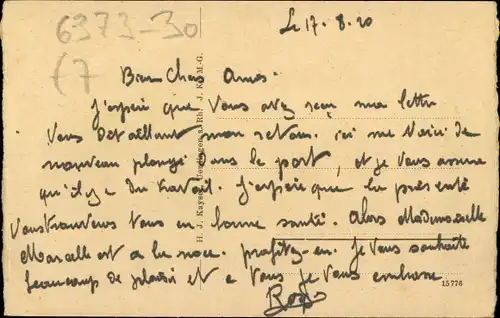 6373-30
(7
Le 17. 8. 20
Bien Chers Amis.
J'espère que Vous avez reçu ma lettre
Vous Détaillant mon retour. ici me Voici de
nouveau plongé dans le port, et je Vous assure
qu'il y a du travail. J'espère que la présente
Vous trouvera tous en bonne santé. Alors Mademoiselle
Marcelle est a la noce. profitez-en. Je Vous souhaite
beaucoup de plaisir et a Vous je Vous embrasse
Roger
H. J. Kayser,
15776